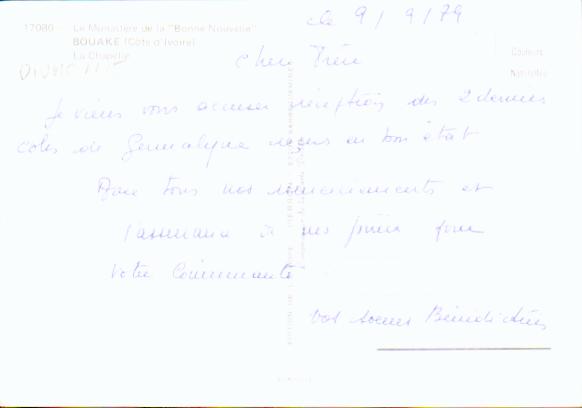 17080 - Le Monastère de la "Bonne Nouvelle"
BOUAKE (Côte d'Ivoire)
La Chapelle
le 9/9/79
Couleurs
Naturelles
cher Frère
Je viens vous accuser réception des 2 derniers
colis de reçus en bon état
Avec tous nos remerciements et
l'assurance de nos prières pour
votre Communauté
vos soeurs Bénédictines